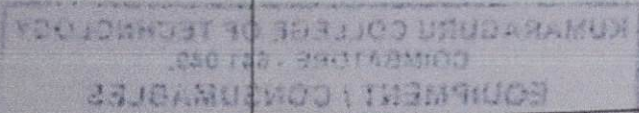 KUMARAGURU COLLEGE OF TECHNOLOGY
COIMBATORE - 641 049.
EQUIPMENT / CONSUMABLES